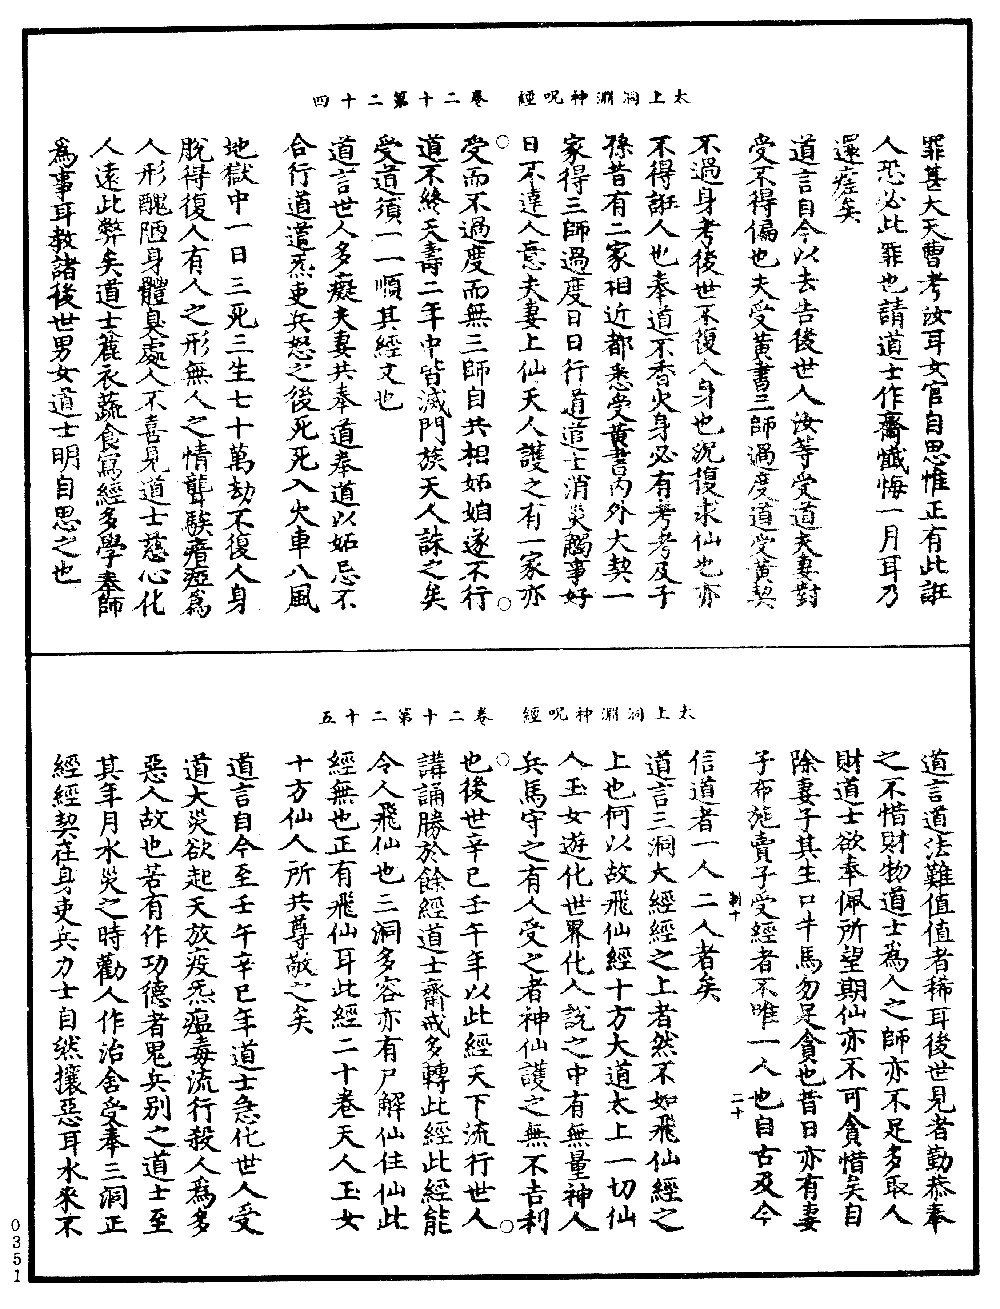 太上洞淵神呪經　卷二十第二十四
罪甚大天曹考汝耳女官自思惟正有此誑
人恐必此罪也請道士作齋懺悔一月耳乃
還瘥矣
道言自今以去告後世人汝等受道夫妻對
受不得偏也夫受黃書三師過度道受黃契
不過身考後世不復人身也況復求仙也亦
不得誑人也奉道不香火身必有考考及子
孫昔有二家相近都悉受黃書內外大契一
家得三師過度日日行道道士消災觸事好
日不違人意夫妻上仙天人護之有一家亦
受而不過度而無三師自共相妬姤遂不行
道不終天壽二年中皆滅門族天人誅之矣
受道須一一順其經文也
道言世人多癡夫妻共奉道奉道以妬忌不
合行道道炁吏兵怒之後死死入火車八風
地獄中一日三死三生七十萬劫不復人身
脫得復人有人之形無人之情聾騃瘖瘂為
人形醜陋身體臭處人不喜見道士慈心化
人遠此弊矣道士麄衣蔬食寫經多學奉師
為事耳教諸後世男女道士明自思之也
太上洞淵神呪經　卷二十第二十五
道言道法難值值者稀耳後世見者勤恭奉
之不惜財物道士為人之師亦不足多取人
財道士欲奉佩所望期仙亦不可貪惜矣自
除妻子其生口牛馬勿足貪也昔日亦有妻
子布施賣子受經者不唯一人也自古及今
制十　二十
信道者一人二人者矣
道言三洞大經經之上者然不如飛仙經之
上也何以故飛仙經十方大道太上一切仙
人玉女遊化世界化人說之中有無量神人
兵馬守之有人受之者神仙護之無不吉利
也後世辛巳壬午年以此經天下流行世人
講誦勝於餘經道士齋戒多轉此經此經能
令人飛仙也三洞多容亦有尸解仙住仙此
經無也正有飛仙耳此經二十卷天人玉女
十方仙人所共尊敬之矣
道言自今至壬午辛巳年道士急化世人受
道大災欲起天放疫炁瘟毒流行殺人為多
惡人故也若有作功德者鬼兵別之道士至
其年月水災之時勸人作治舍受奉三洞正
經經契在身吏兵力士自然攘惡耳水來不
0351